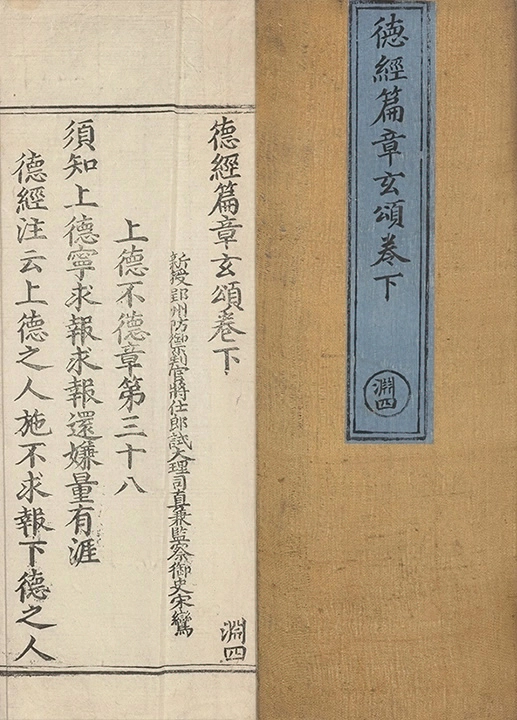 德經篇章玄頌卷下
淵四
德經篇章玄頌卷下
淵四
新授郢州防禦判官將仕郎試大理司直兼監察御史宋鸞
上德不德章第三十八
須知上德寧求報求報還嫌量有涯
德經注云上德之人施不求報下德之人